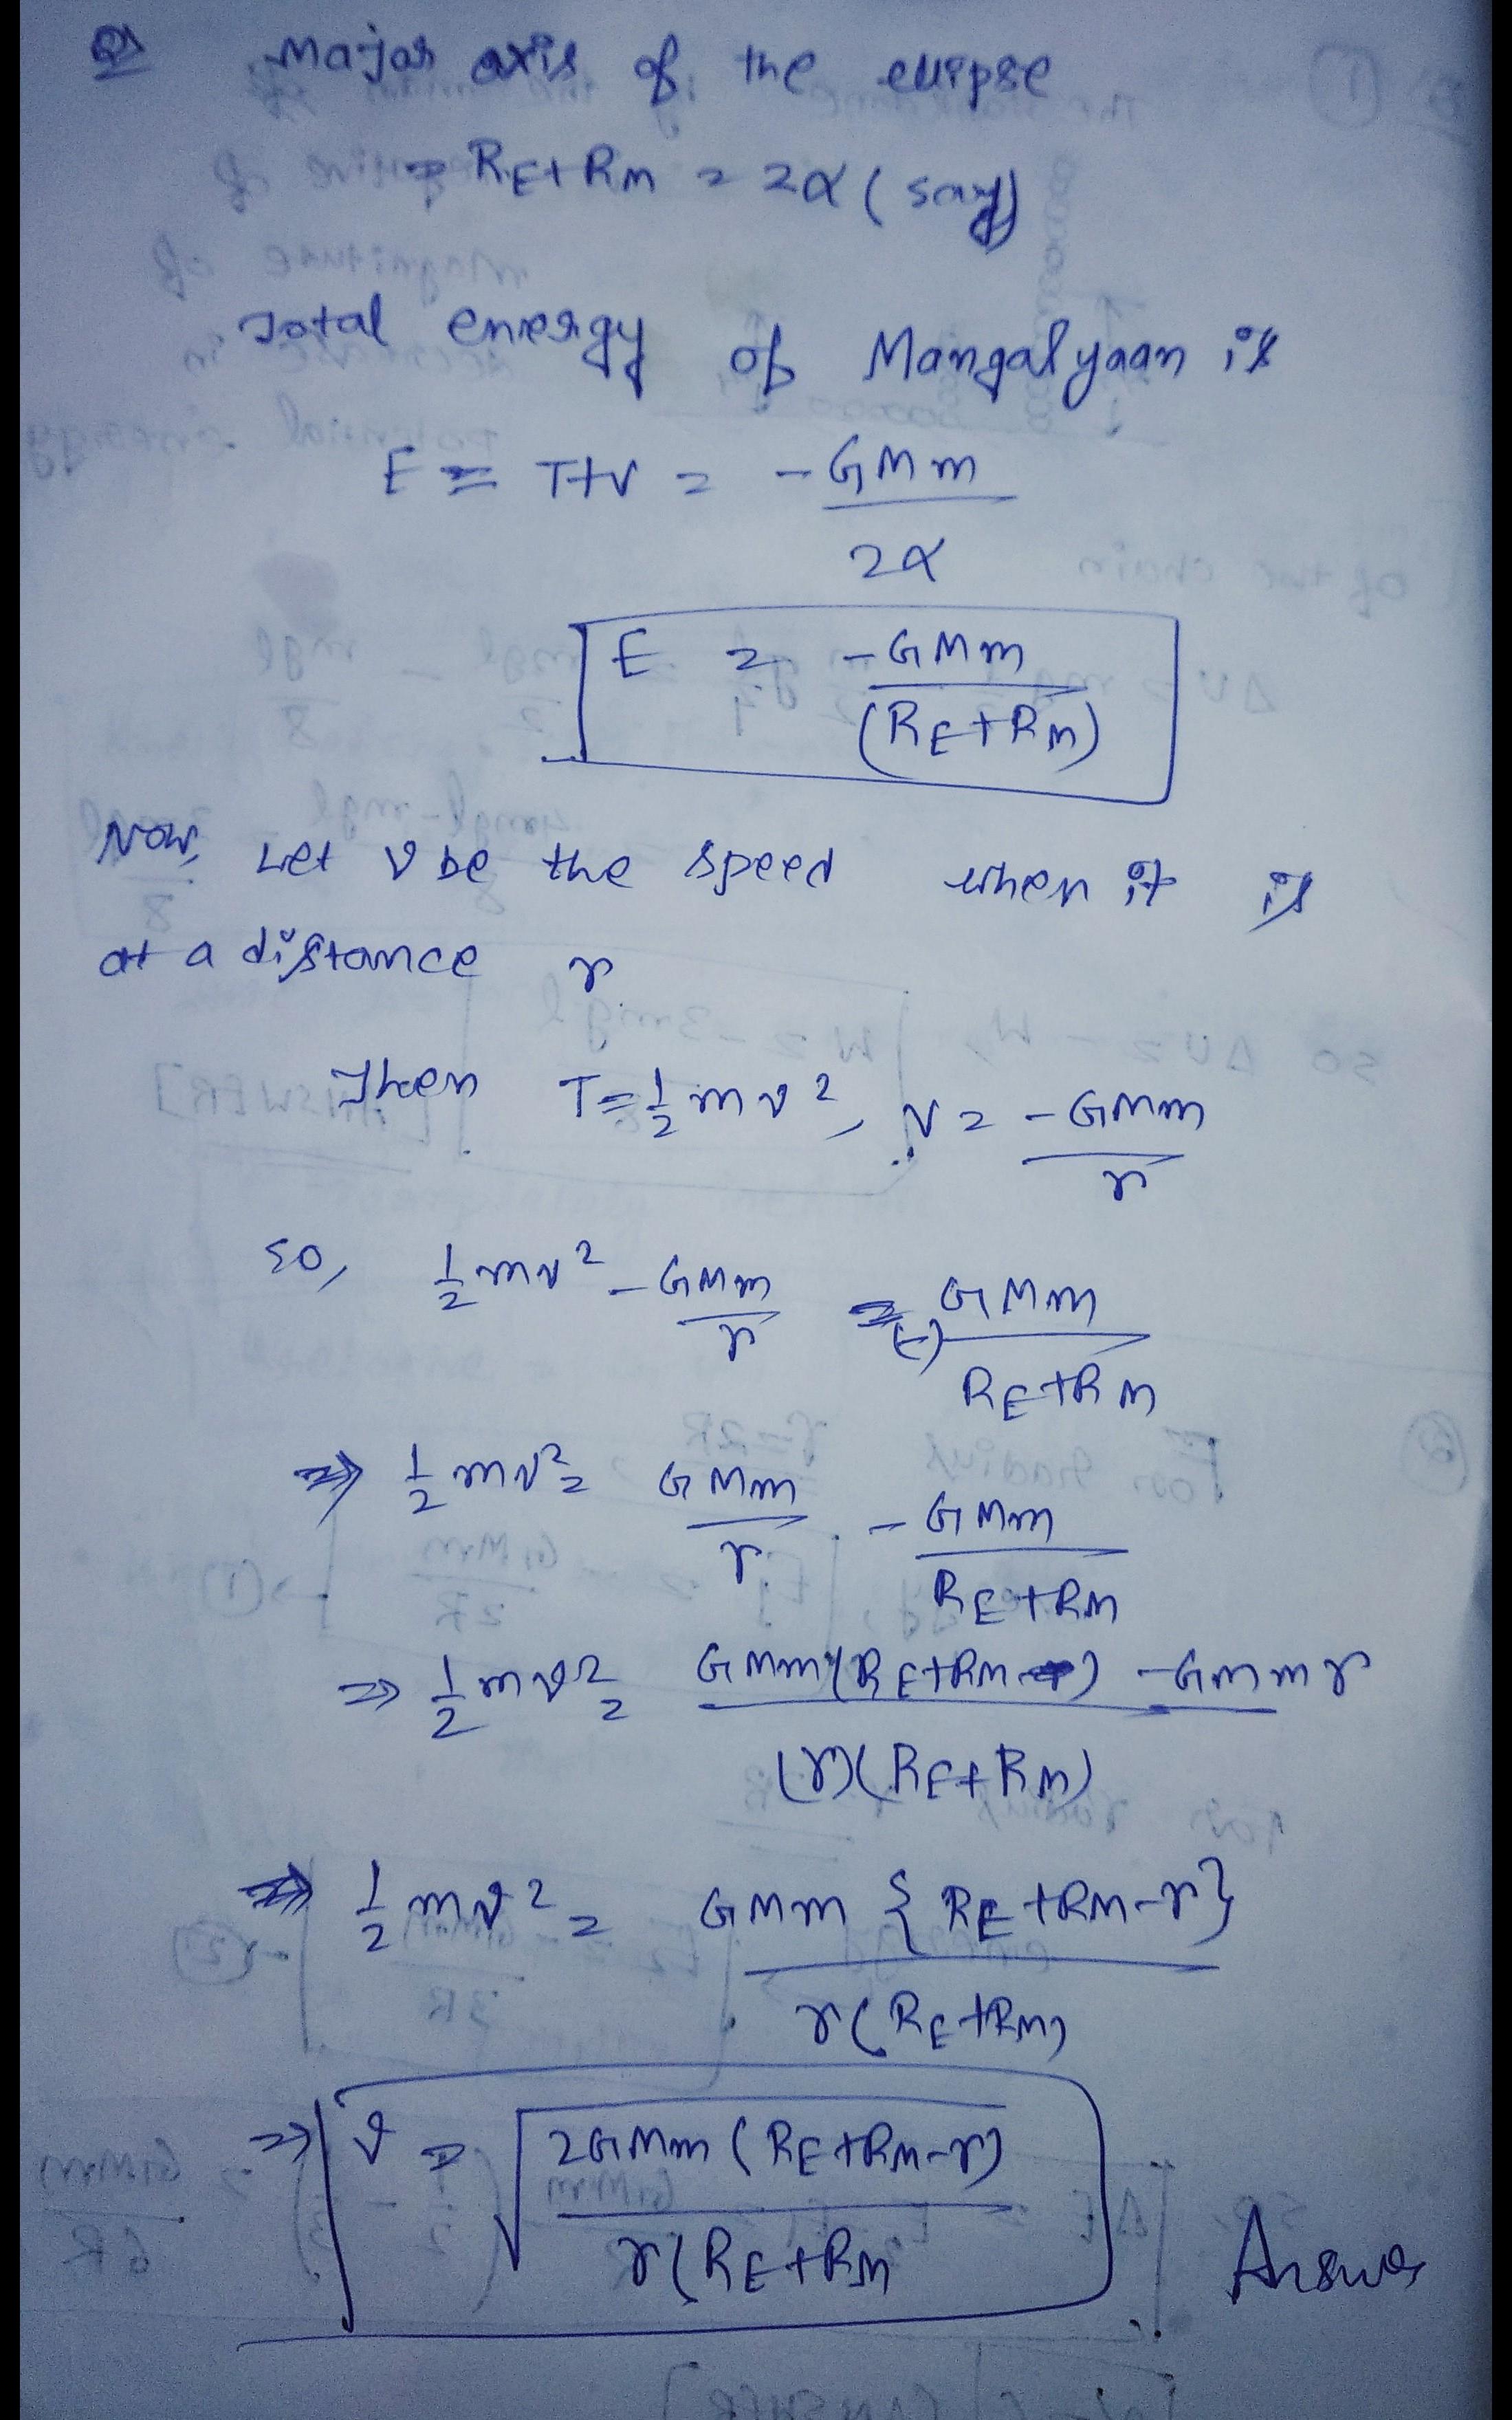 Q Major axis of the ellipse
= RE+RM = 2α (say)
Total energy of Mangalyaan is
E = T+V = -GMm
2α
E = -GMm
(RE+RM)
Now, Let v be the speed when it is
at a distance r
Then T=1/2 mv², V = -GMm
r
so, 1/2 mv² - GMm/r = (-) GMm
RE+RM
⇒ 1/2 mv² = GMm/r - GMm
RE+RM
⇒ 1/2 mv² = GMm (RE+RM) - GMmr
(r)(RE+RM)
⇒ 1/2 mv² = GMm {RE+RM-r}
r(RE+RM)
⇒ v = √ 2GMm (RE+RM-r)
r(RE+RM
Answer